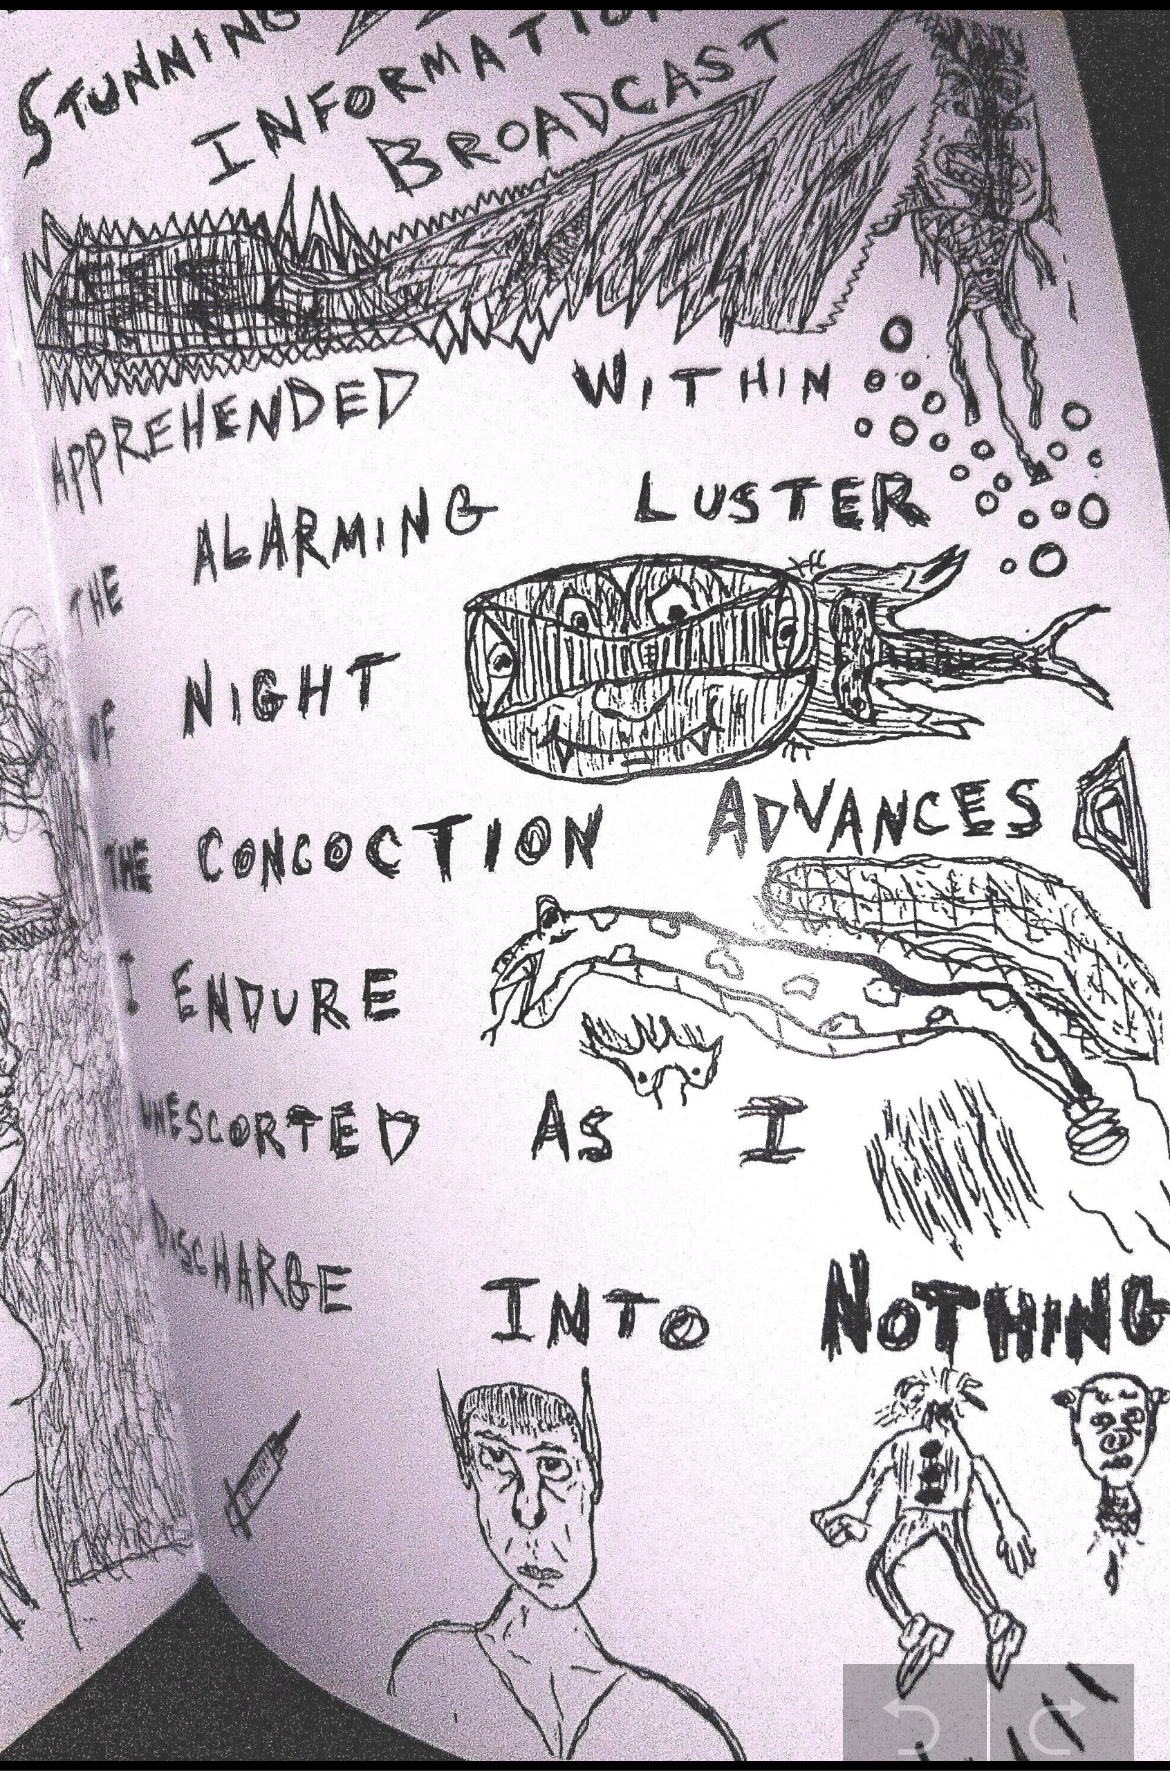 STUNNING
INFORMATION
BROADCAST
APPREHENDED WITHIN
THE ALARMING LUSTER
OF NIGHT
THE CONCOCTION ADVANCES
I ENDURE
UNESCORTED AS I
DISCHARGE INTO NOTHING